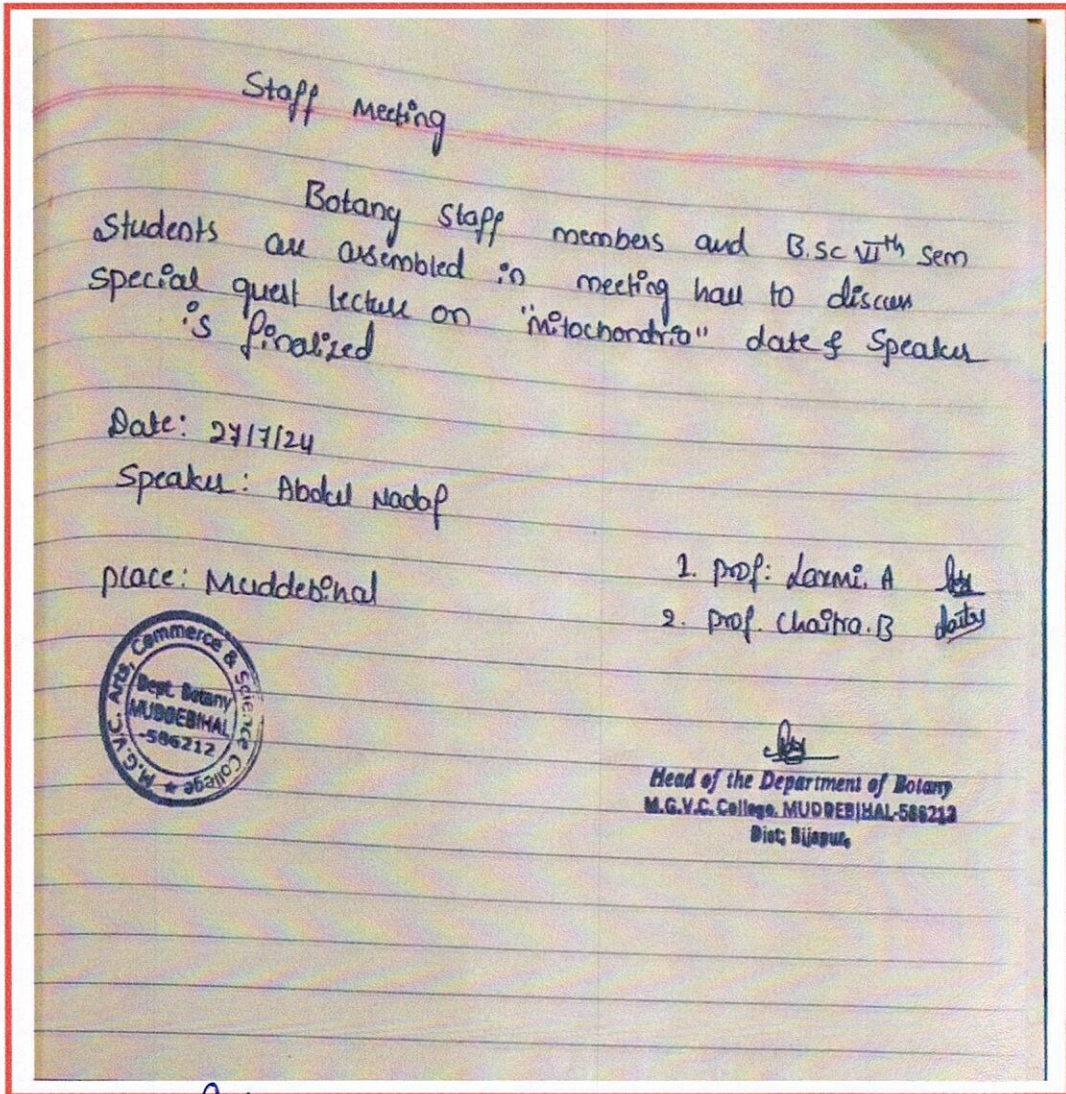 Staff Meeting
Botany staff members and B.sc VIth sem
Students are assembled in meeting hall to discuss
special guest lecture on "Mitochondria" date & Speaker
is finalized
Date: 27/7/24
Speaker: Abdul Nadaf
place: Muddebihal
1. prof: Laxmi. A
2. prof. Chaitra. B
M.G.V.C. Arts, Commerce & Science College
Dept. Botany
MUDDEBIHAL
-586212
Head of the Department of Botany
M.G.V.C. College, MUDDEBIHAL-586212
Dist; Bijapur,